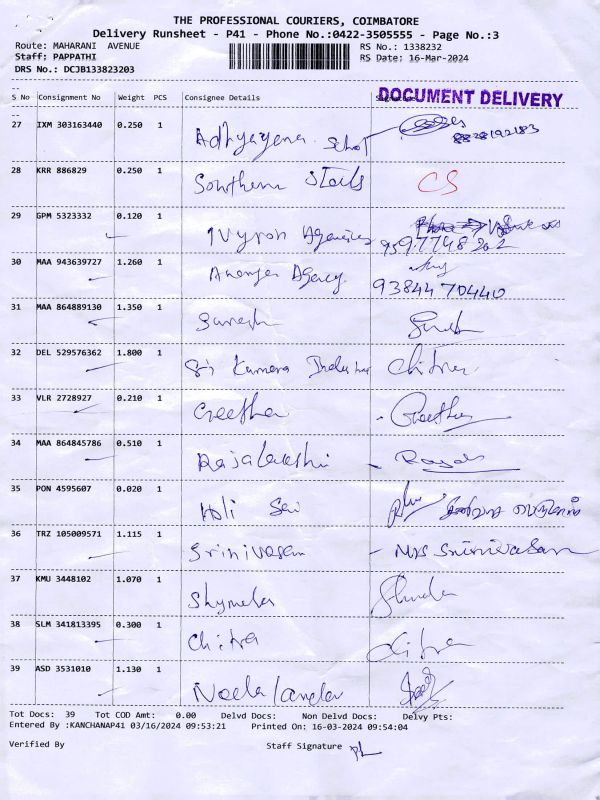 THE PROFESSIONAL COURIERS, COIMBATORE
Delivery Runsheet - P41 - Phone No.:0422-3505555 - Page No.:3
Route: MAHARANI AVENUE RS No.: 1338232
Staff: PAPPATHI RS Date: 16-Mar-2024
DRS No.: DCJB133823203
DOCUMENT DELIVERY
S No Consignment No Weight PCS Consignee Details
27 IXM 303163440 0.250 1 Adhyayana School
28 KRR 886829 0.250 1 Southern CS
29 GPM 5323332 0.120 1 Ivyron Agencies
30 MAA 943639727 1.260 1 Ananya Agency 93844 70440
31 MAA 864889130 1.350 1 Suresh
32 DEL 529576362 1.800 1 Sri Kumara Chitra
33 VLR 2728927 0.210 1 Geetha Geetha
34 MAA 864845786 0.510 1 Rajalakshi
35 PON 4595607 0.020 1
36 TRZ 105009571 1.115 1 Srinivasan - Mrs Srinivasan
37 KMU 3448102 1.070 1 Shymala
38 SLM 341813395 0.300 1 Chitra
39 ASD 3531010 1.130 1
Tot Docs: 39 Tot COD Amt: 0.00 Delvd Docs: Non Delvd Docs: Delvy Pts:
Entered By :KANCHANAP41 03/16/2024 09:53:21 Printed On: 16-03-2024 09:54:04
Verified By Staff Signature